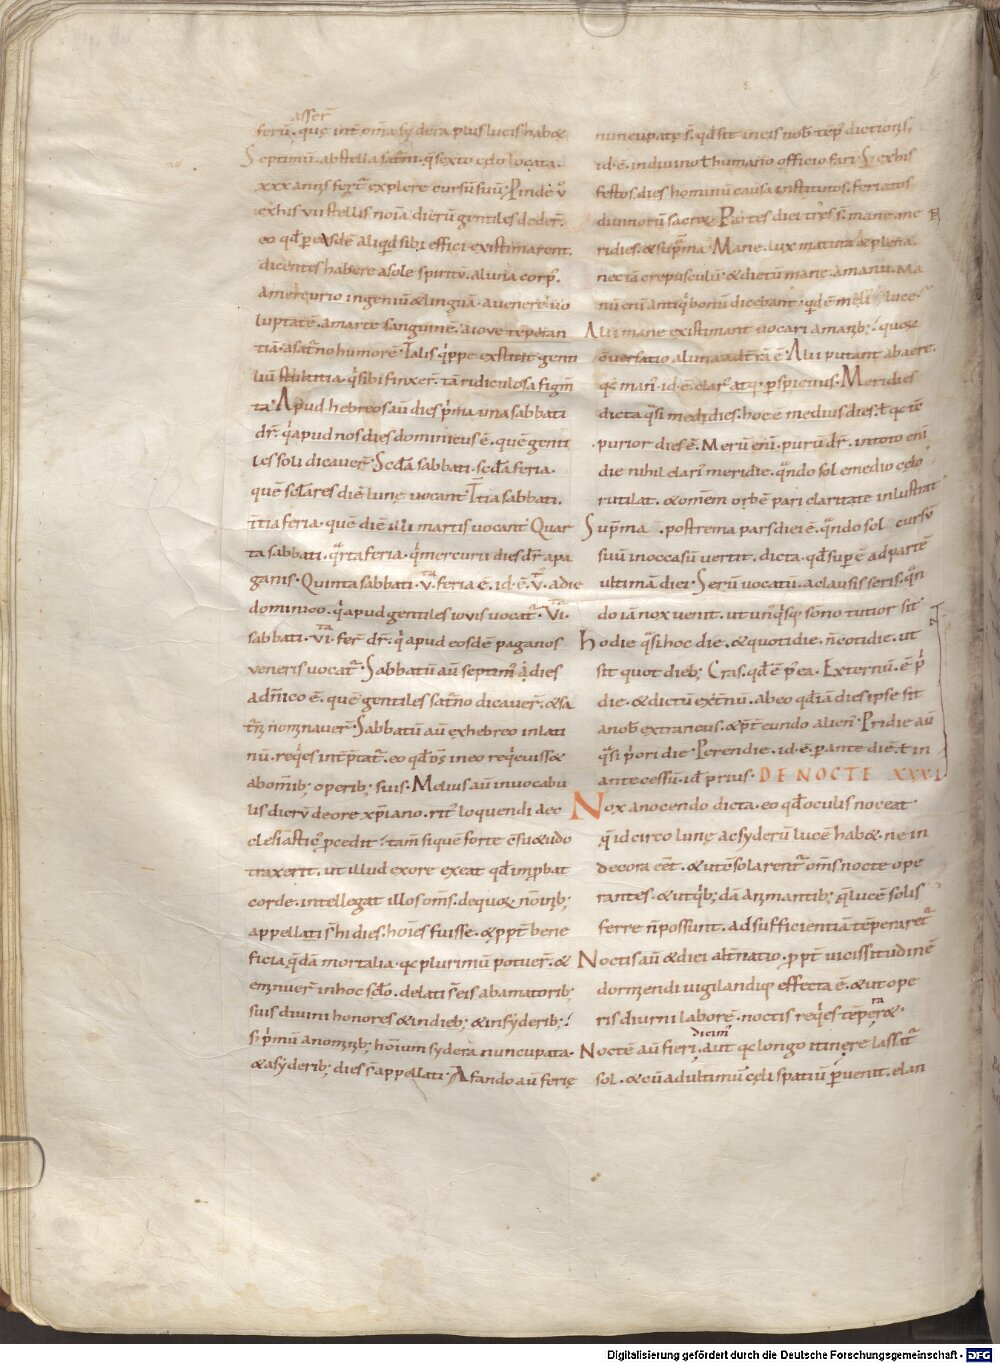 asser
ferū. quę int̄ om̄a sydera plus lucis habȩ&
Septimū. ab stella saturni. q̄ sexto cęlo locata.
xxx annis fert̄ explere cursū suū; Proinde ū
ex his vii stellis nōia dierū gentiles deder̄.
eo qđ p easdē aliqđ sibi effici existimarent.
dicentes habere a sole spiritū. a luna corp̄.
a mercurio ingeniū & linguā. a uenere uo
luptatē. a marte sanguinē. a ioue tēperan
tiā. a sat̄no humorē. Talis q̄ppe extitit genti
liū stultitia. q̄ sibi finxer̄. tā ridiculosa figm̄
ta. Apud hebreos aū dies p̄ma una sabbati
dr̄. q̄ apud nos dies dominicus ē. quē genti
les soli dicauer̄. Scđa sabbati. scđa feria.
quē sclares diē lunę uocant. T̄tia sabbati.
t̄tia feria. quē diē illi martis uocant. Quar
ta sabbati. q̄rta feria. q̄ mercurii dies dr̄ a pa
ganis. Quinta sabbati. v̄. feria ē. id ē. v̄. a die
dominico. q̄ apud gentiles iovis uocat̄. VI.
sabbati. vi. fer̄ dr̄. q̄ apud eosdē paganos
veneris uocat̄. Sabbatū aū septim' a dies
a dn̄ico ē. quē gentiles sat̄no dicauer̄. & sa
t̄ni nominauer̄. Sabbatū aū ex hebreo in lati
nū. req̄es int̄p̄tat̄. eo qđ ds̄ in eo req̄euiss&
ab om̄ib; operib; suis. Melius aū in uocabu
lis dierū de ore xp̄iano. rit' loquendi aec
clesiastic' p̄cedit. tam̄ si quē forte c̄suȩtudo
traxerit. ut illud ex ore exeat qđ inp̄bat
corde. intellegat illos om̄s. de quoꝝ nōinib;
appellati s̄ hi dies. hōies fuisse. & ppt̄ bene
ficia q̄dā mortalia. qc̄ plurimū potuer̄. &
eminuer̄ in hoc sc̄lo. delati s̄ eis ab amatorib;
suis diuini honores & in dieb; & in syderib;
S; p̄mū a nominib; hōium sydera nuncupata.
& a syderib; dies s̄ appellati. A fando aū ferię
nuncupatę s̄. qđ sit in eis nob̄ tēp' dictionis.
id ē. in diuino ł humano officio fari. S; ex his
festos dies hominū causa institutos. feriatos
diuinorū sacroꝝ. Partes diei tres s̄. mane. me
ridies. & sup̄ma. Mane. lux matura & plena.
nec iā crepusculū. & dictū mane. a manu. Ma
nū enī antiq̄ bonū dicebant. qđ ē meli' luce.
Alii mane existimant uocari a manib; quoꝝ
c̄uersatio a luna ad t̄rā ē. Alii putant ab aere.
qc̄ man'. id ē. rar' atq; p̄spicuus. Meridies
dicta q̄si medidies. hoc ē medius dies. ł qc̄ tc̄
purior dies ē. Merū enī. purū dr̄. in toto enī
die nihil clari' meridie. q̄ndo sol e medio cęlo
rutilat. & omem orbē pari claritate inlustrat
Sup̄ma. postrema pars diei ē. q̄ndo sol cursū
suū in occasū uertit. dicta. qđ sup ē ad partē
ultimā diei. Serū uocatū. a clausis seris. q̄n
do iā nox uenit. ut unq̄sq; sōno tutior sit
Hodie q̄si hoc die. & quotidie. n̄ cotidie. ut
sit quot dieb; Cras. qđ ē p̄ea. Externū. ē p̄
die. & dictū ext̄nū. ab eo qđ iā dies ipse sit
a nob̄ extraneus. & p̄t̄eundo alien'. Pridie aū
q̄si p̄ori die. Perendie. id ē. p ante diē. ł in
antecessū. id ē prius. DE NOCTE XXXI
Nox a nocendo dicta. eo qđ oculis noceat
q̄ idcirco lunę ac syderū lucē hab&. ne in
decora eēt. & ut c̄solarent̄ om̄s nocte ope
rantes. & ut q̄b; dā animantib; q̄ lucē solis
ferre n̄ possunt. ad sufficientiā tēperaret̄
Noctis aū & diei alt̄natio. ppt̄ uicissitudinē
dormiendi uigilandiq; effecta ē. & ut ope
ris diurni laborē. noctis req̄es tēper&
ra
dicim'
Noctē aū fieri. aut qc̄ longo itinere lassat̄
sol. & cū ad ultimū cęli spatiū p̄uenit. elan
Digitalisierung gefördert durch die Deutsche Forschungsgemeinschaft - DFG